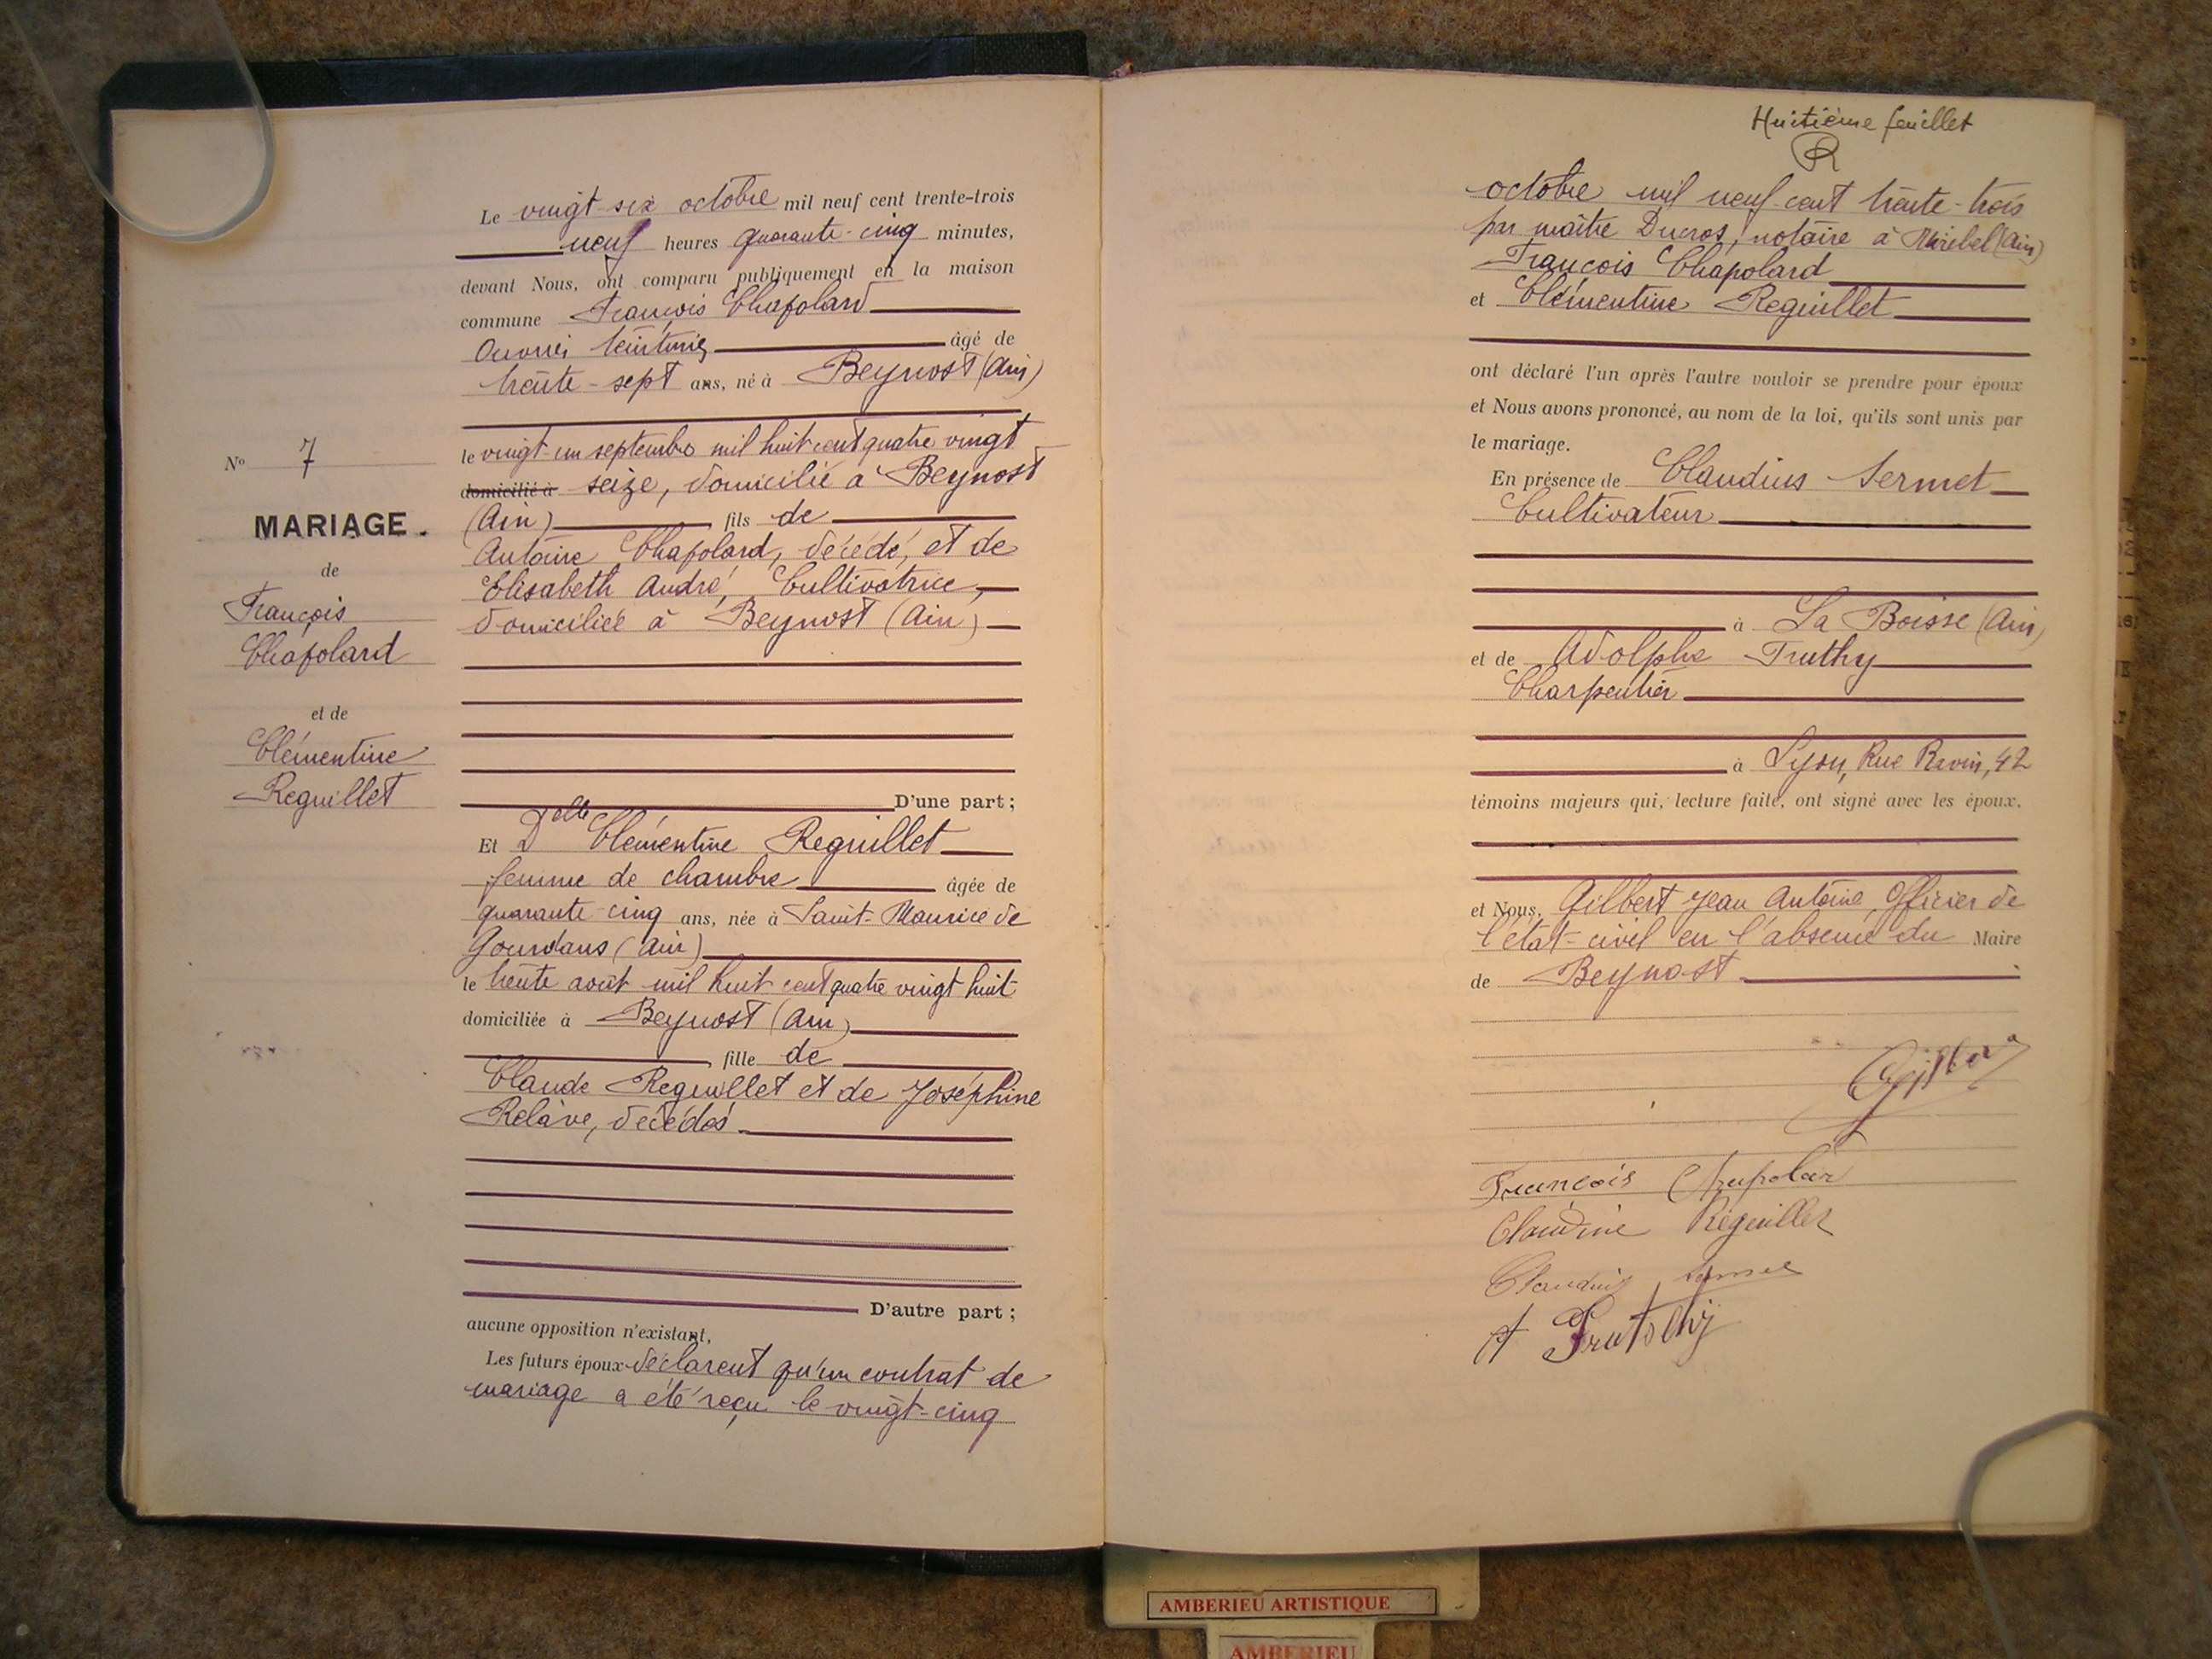 Le vingt-six octobre mil neuf cent trente-trois
neuf heures quarante-cinq minutes,
devant Nous, ont comparu publiquement en la maison
commune François Chapolard
Ouvrier teinturier âgé de
trente-sept ans, né à Beynost (Ain)
le vingt-un septembre mil huit cent quatre vingt
domicilié à seize, domicilié à Beynost
(Ain) fils de
Antoine Chapolard, décédé, et de
Elisabeth André, Cultivatrice,
domiciliée à Beynost (Ain)
No 7
MARIAGE.
de
François
Chapolard
et de
Clémentine
Reguillet
D'une part;
Et Delle Clémentine Reguillet
femme de chambre âgée de
quarante-cinq ans, née à Saint-Maurice de
Gourdans (Ain)
le trente août mil huit cent quatre vingt huit
domiciliée à Beynost (Ain)
fille de
Claude Reguillet et de Joséphine
Relave, décédés.
D'autre part;
aucune opposition n'existant,
Les futurs époux déclarent qu'un contrat de
mariage a été reçu le vingt-cinq
Huitième feuillet
R
octobre mil neuf cent trente-trois
par maître Ducros, notaire à Miribel (Ain)
François Chapolard
et Clémentine Reguillet
ont déclaré l'un après l'autre vouloir se prendre pour époux
et Nous avons prononcé, au nom de la loi, qu'ils sont unis par
le mariage.
En présence de Claudius Sermet
Cultivateur
à La Boisse (Ain)
et de Adolphe Truthy
Charpentier
à Lyon, Rue 42
témoins majeurs qui, lecture faite, ont signé avec les époux.
et Nous, Gilbert Jean Antoine, Officier de
l'état-civil en l'absence du Maire
de Beynost
François Chapolar
Claudine Réguillet
Claudius
A
AMBERIEU ARTISTIQUE
AMBERIEU